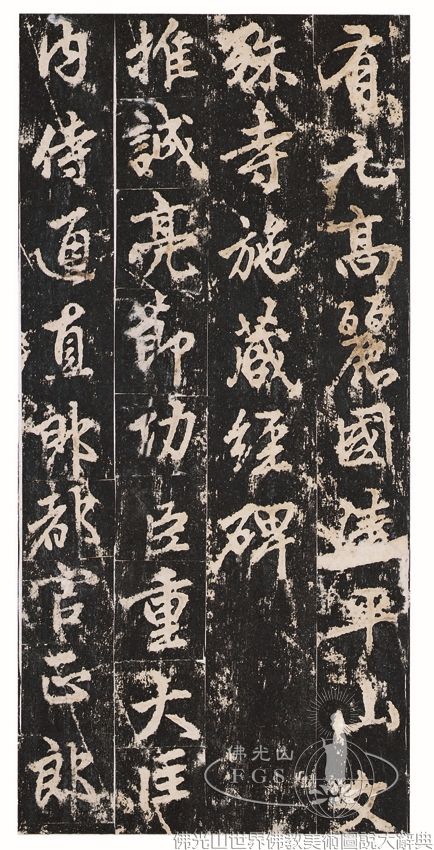 有元高麗國清平山文
殊寺施藏經碑
推誠亮節功臣重大匡
內侍通直郎都官正郎
佛光山
FGS
佛光山世界佛教美術圖說大辭典